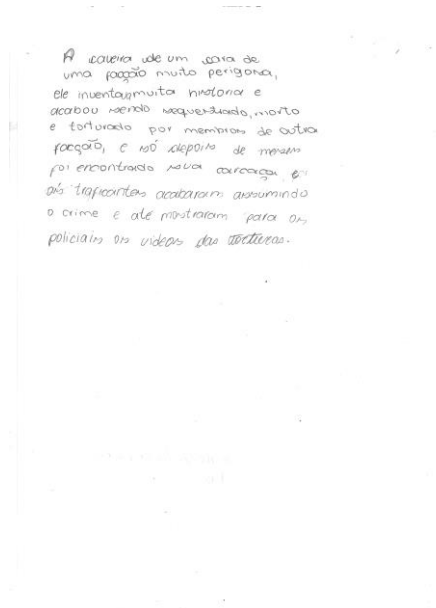 A caveira de um cara de
uma facção muito perigosa,
ele inventava muita historia e
acabou sendo sequestrado, morto
e torturado por membros de outra
facção, e só depois de meses
foi encontrado sua carcaça, e
os traficantes acabaram assumindo
o crime e até mostraram para os
policiais os videos das torturas.